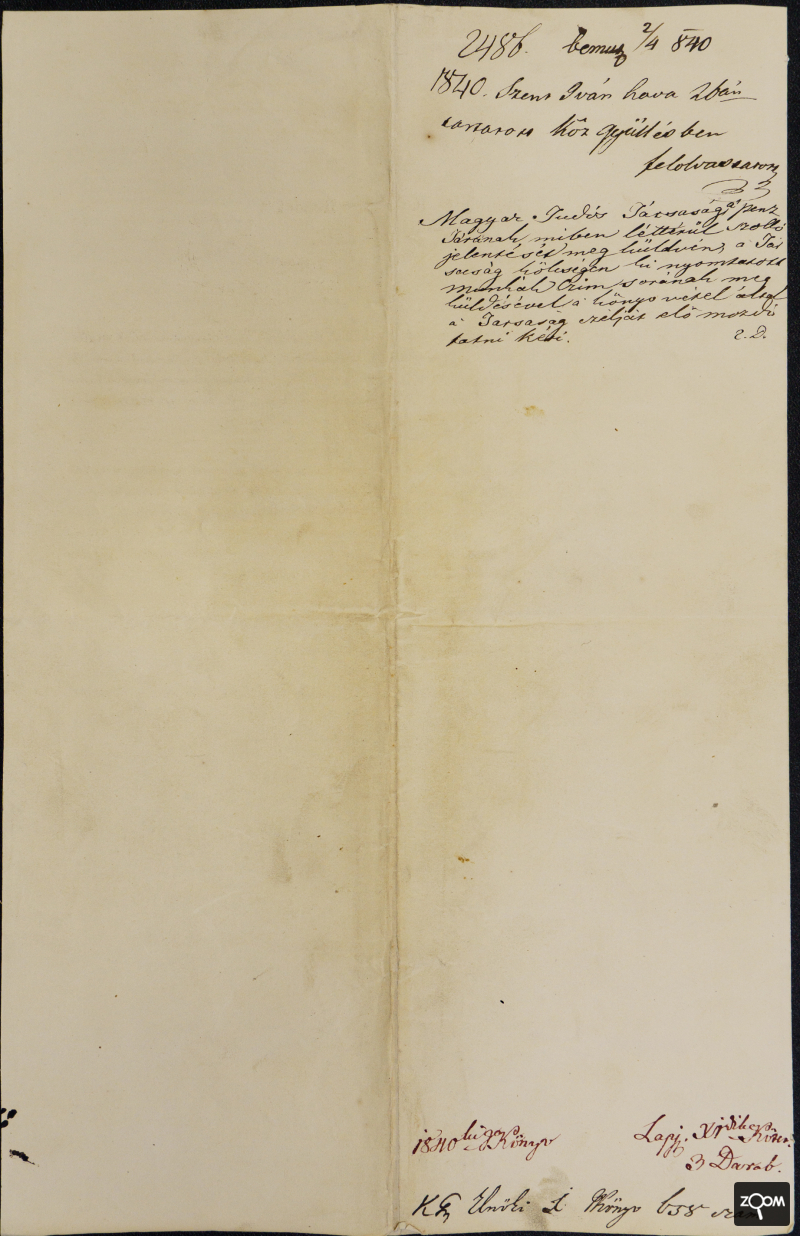 2486. bemut 2/4 840
1840. Szent Iván hava 26án
tartatott köz gyűllésben
felolvastatott
Magyar Tudós Társaság a' penz
Tárának miben léttérül szolló
jelentését meg küldvén, a Tár
saság költségen ki nyomtatott
munkák Czim sorának meg
küldésével a könyv vétel által
a Társaság czélját elő mozdí
tatni kéri.
2. D.
1840 Könyv
Lapj. XI Köteg.
3 Darab.
Elnöki I Könyv 658 szám
ZOOM